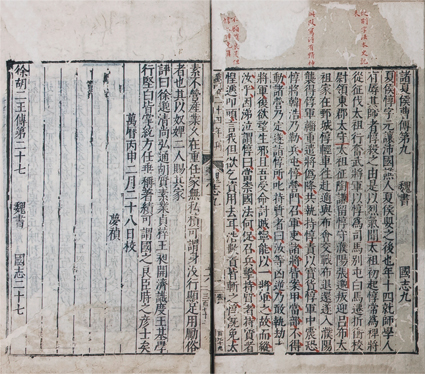 諸夏侯曹傳第九　魏書　國志九
夏侯惇字元讓沛國譙人夏侯嬰之後也年十四就師學人
有辱其師者惇殺之由是以烈氣聞太祖初起惇常為裨將
從征伐太祖行奮武將軍以惇為司馬別屯白馬遷折衝校
尉領東郡太守太祖征陶謙留惇守濮陽張邈叛迎呂布太
祖家在鄄城惇輕軍往赴適與布會交戰布退還遂入濮陽
襲得惇軍輜重遣將偽降共執持惇責以寶貨惇軍中震恐
惇將韓浩乃勒兵屯惇營門召軍吏諸將皆案甲當部不得
動諸營乃定遂詣惇所叱持質者曰汝等凶逆乃敢執劫大
將軍復欲望生邪且吾受命討賊寧能以一將軍之故而縱
汝乎因涕泣謂惇曰當奈國法何促召兵擊持質者持質者
惶遽叩頭言我但欲乞資用去耳浩數責皆斬之惇既免太
素不營產業久在重任家無
者也其以奴婢二人賜其家
評曰徐邈清尚弘通胡質素業貞粹王昶開濟識度王基學
行堅白皆掌統方任垂稱著績可謂國之良臣時之彥士矣
萬曆丙申二月二十八日校
夢禎
徐胡二王傳第二十七　魏書　國志二十七